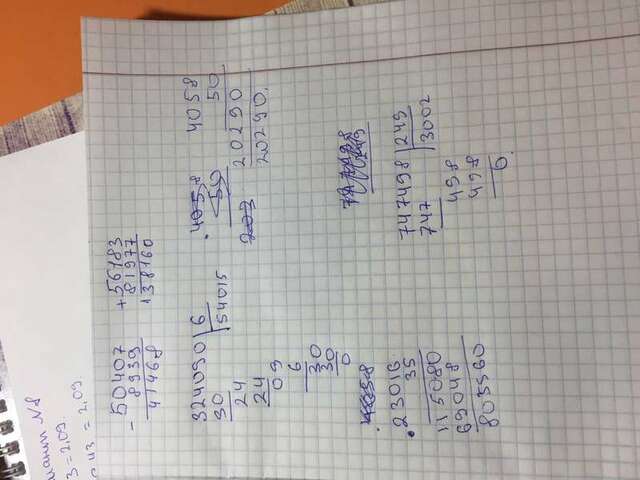 иант N8
3 = 2,09.
43 = 2,09.
- 50407
8939
41468
+ 56183
81977
138160
324090 | 6
30 54015
24
24
09
6
30
30
0
4058
50
20290
20290.
. 23016
35
115080
69048
805560
747498 | 249
747 3002
498
498
0.